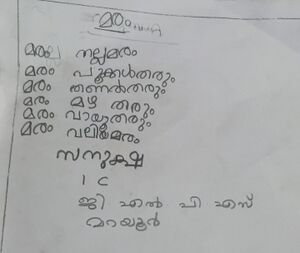 മരം
മരം നല്ലമരം
മരം പൂക്കൾതരും
മരം തണൽതരും
മരം മഴ തരും
മരം വായുതരും
മരം വലിയമരം
സനുക്ഷ
1 C
ജി എൽ പി എസ്
മറയൂർ